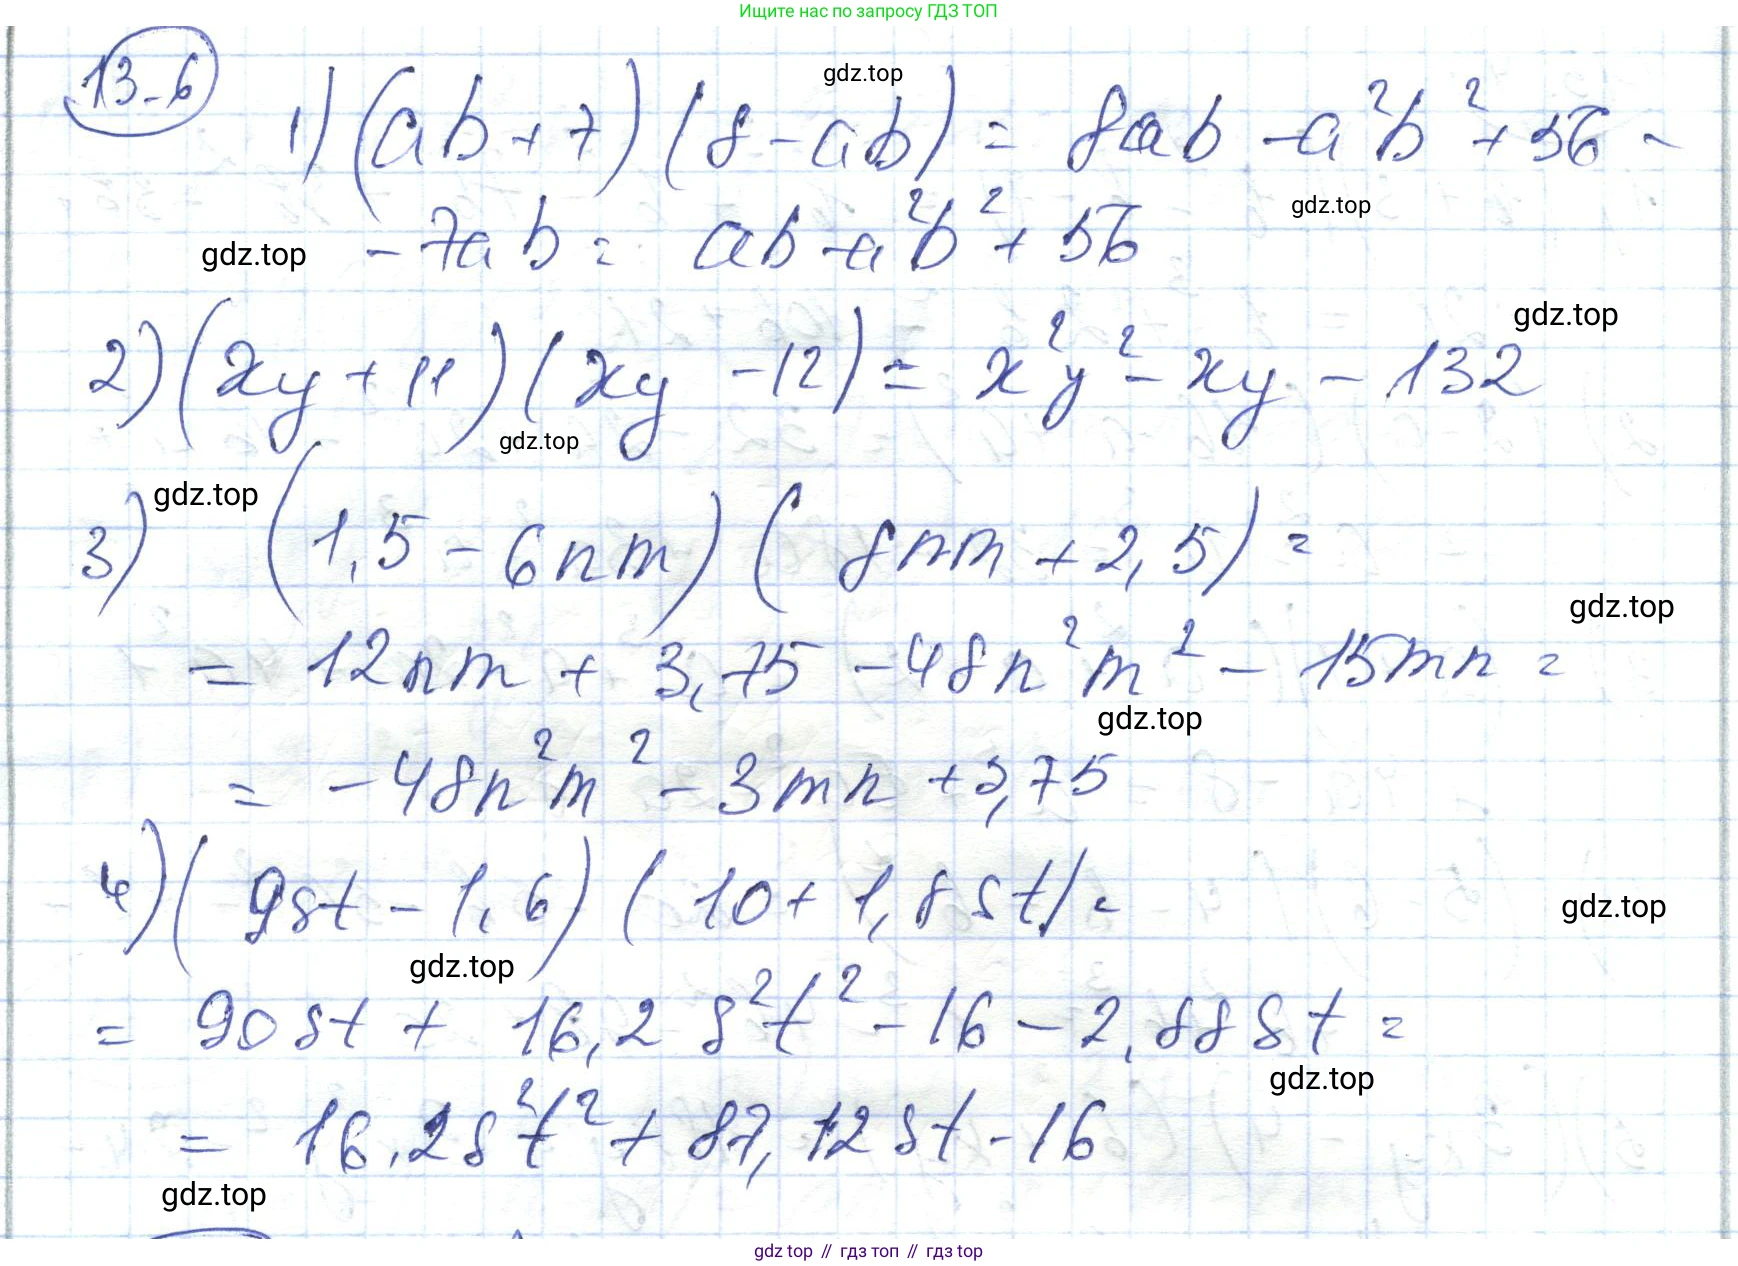 Ищите нас по запросу ГДЗ ТОП
13.6
gdz.top
1) (ab + 7)(8 - ab) = 8ab - a²b² + 56 -
gdz.top
gdz.top
- 7ab = ab - a²b² + 56
gdz.top
2) (xy + 11)(xy - 12) = x²y² - xy - 132
gdz.top
gdz.top
3) (1,5 - 6nm)(8nm + 2,5) =
gdz.top
= 12nm + 3,75 - 48n²m² - 15mn =
gdz.top
= -48n²m² - 3mn + 3,75
4) (9st - 1,6)(10 + 1,8st) =
gdz.top
gdz.top
= 90st + 16,2s²t² - 16 - 2,88st =
gdz.top
= 16,2s²t² + 87,12st - 16
gdz.top
gdz top // гдз топ // гдз top